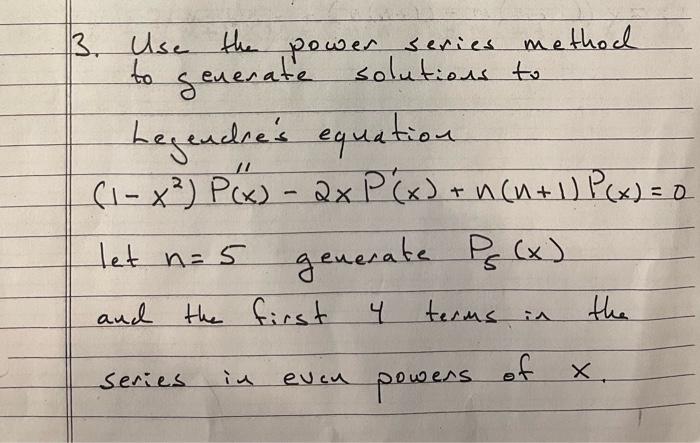 3. Use the power series method
to generate solutions to
Legendre's equation
(1-x²) P''(x) - 2x P'(x) + n(n+1) P(x) = 0
let n = 5 generate P₅(x)
and the first 4 terms in the
series in even powers of x.